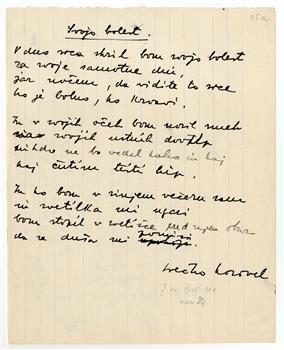 95a
Svojo bolest
V dno srca skril bom svojo bolest
za svoje samotne dni,
jaz nočem, da vidite to srce
ko je bolno, ko krvavi.
In v svojih očeh bom nosil smeh
svojih ustnih
nikdo ne bo vedel kaj
kaj čutim tisti hip.
In ko bom v sinjem večeru sam
ni svetilka mi
bom stopil v svetišče
da se duša mi
Srečko Kosovel